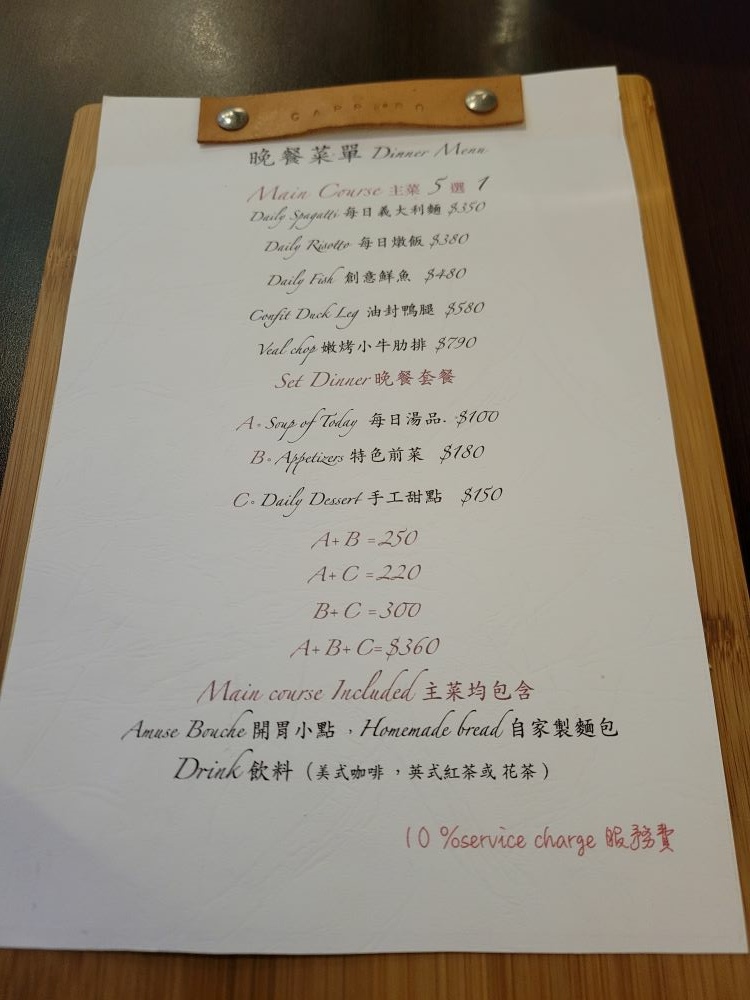 晚餐菜單 Dinner Menu
Main Course 主菜 5 選 1
Daily Spagatti 每日義大利麵 $350
Daily Risotto 每日燉飯 $380
Daily Fish 創意鮮魚 $480
Confit Duck Leg 油封鴨腿 $580
Veal chop 嫩烤小牛肋排 $790
Set Dinner 晚餐套餐
A。Soup of Today 每日湯品. $100
B。Appetizers 特色前菜 $180
C。Daily Dessert 手工甜點 $150
A+B =250
A+C =220
B+C =300
A+B+C=$360
Main course Included 主菜均包含
Amuse Bouche 開胃小點，Homemade bread 自家製麵包
Drink 飲料（美式咖啡，英式紅茶或花茶）
10 %service charge 服務費